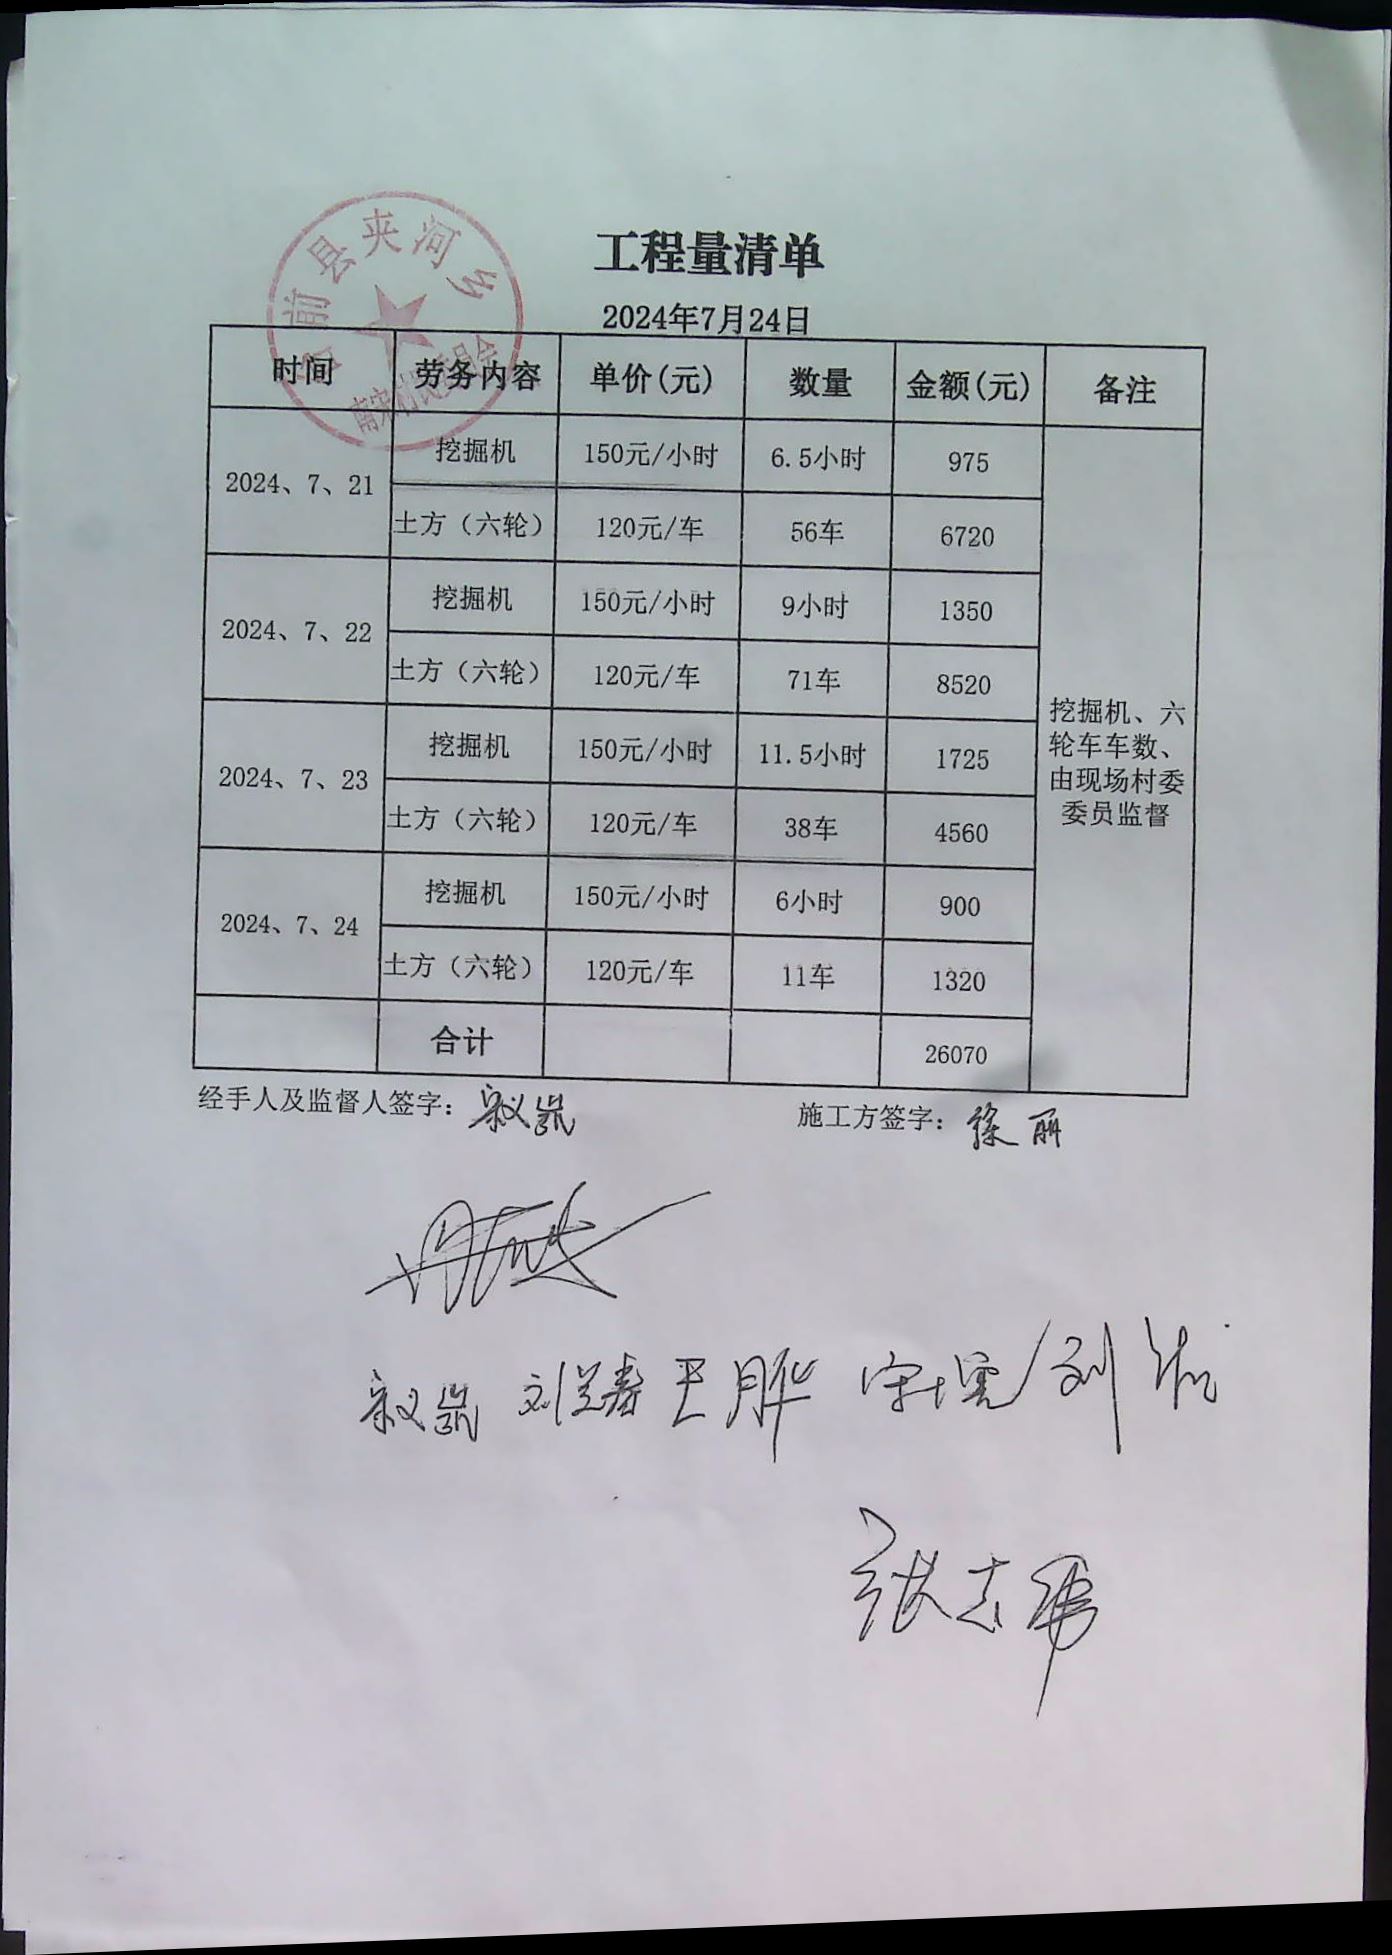 工程量清单
2024年7月24日
台前县夹河乡
南宋村民委员会
时间 劳务内容 单价(元) 数量 金额(元) 备注
2024、7、21 挖掘机 150元/小时 6.5小时 975
土方（六轮） 120元/车 56车 6720
2024、7、22 挖掘机 150元/小时 9小时 1350
土方（六轮） 120元/车 71车 8520
2024、7、23 挖掘机 150元/小时 11.5小时 1725
土方（六轮） 120元/车 38车 4560
2024、7、24 挖掘机 150元/小时 6小时 900
土方（六轮） 120元/车 11车 1320
合计 26070
挖掘机、六
轮车车数、
由现场村委
委员监督
经手人及监督人签字：
施工方签字：徐丽
刘兰春 王月华 刘
张志